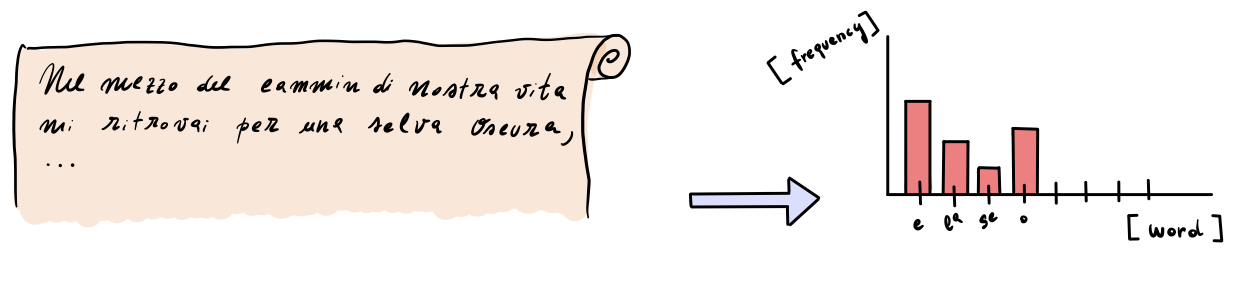 Nel mezzo del cammin di nostra vita
mi ritrovai per una selva oscura,
...
[frequency]
e la se o
[word]